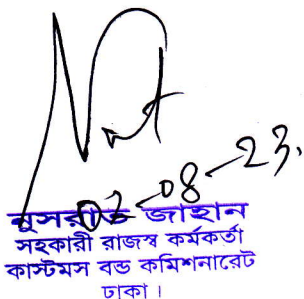 02-08-23.
নুসরাত জাহান
সহকারী রাজস্ব কর্মকর্তা
কাস্টমস বন্ড কমিশনারেট
ঢাকা।